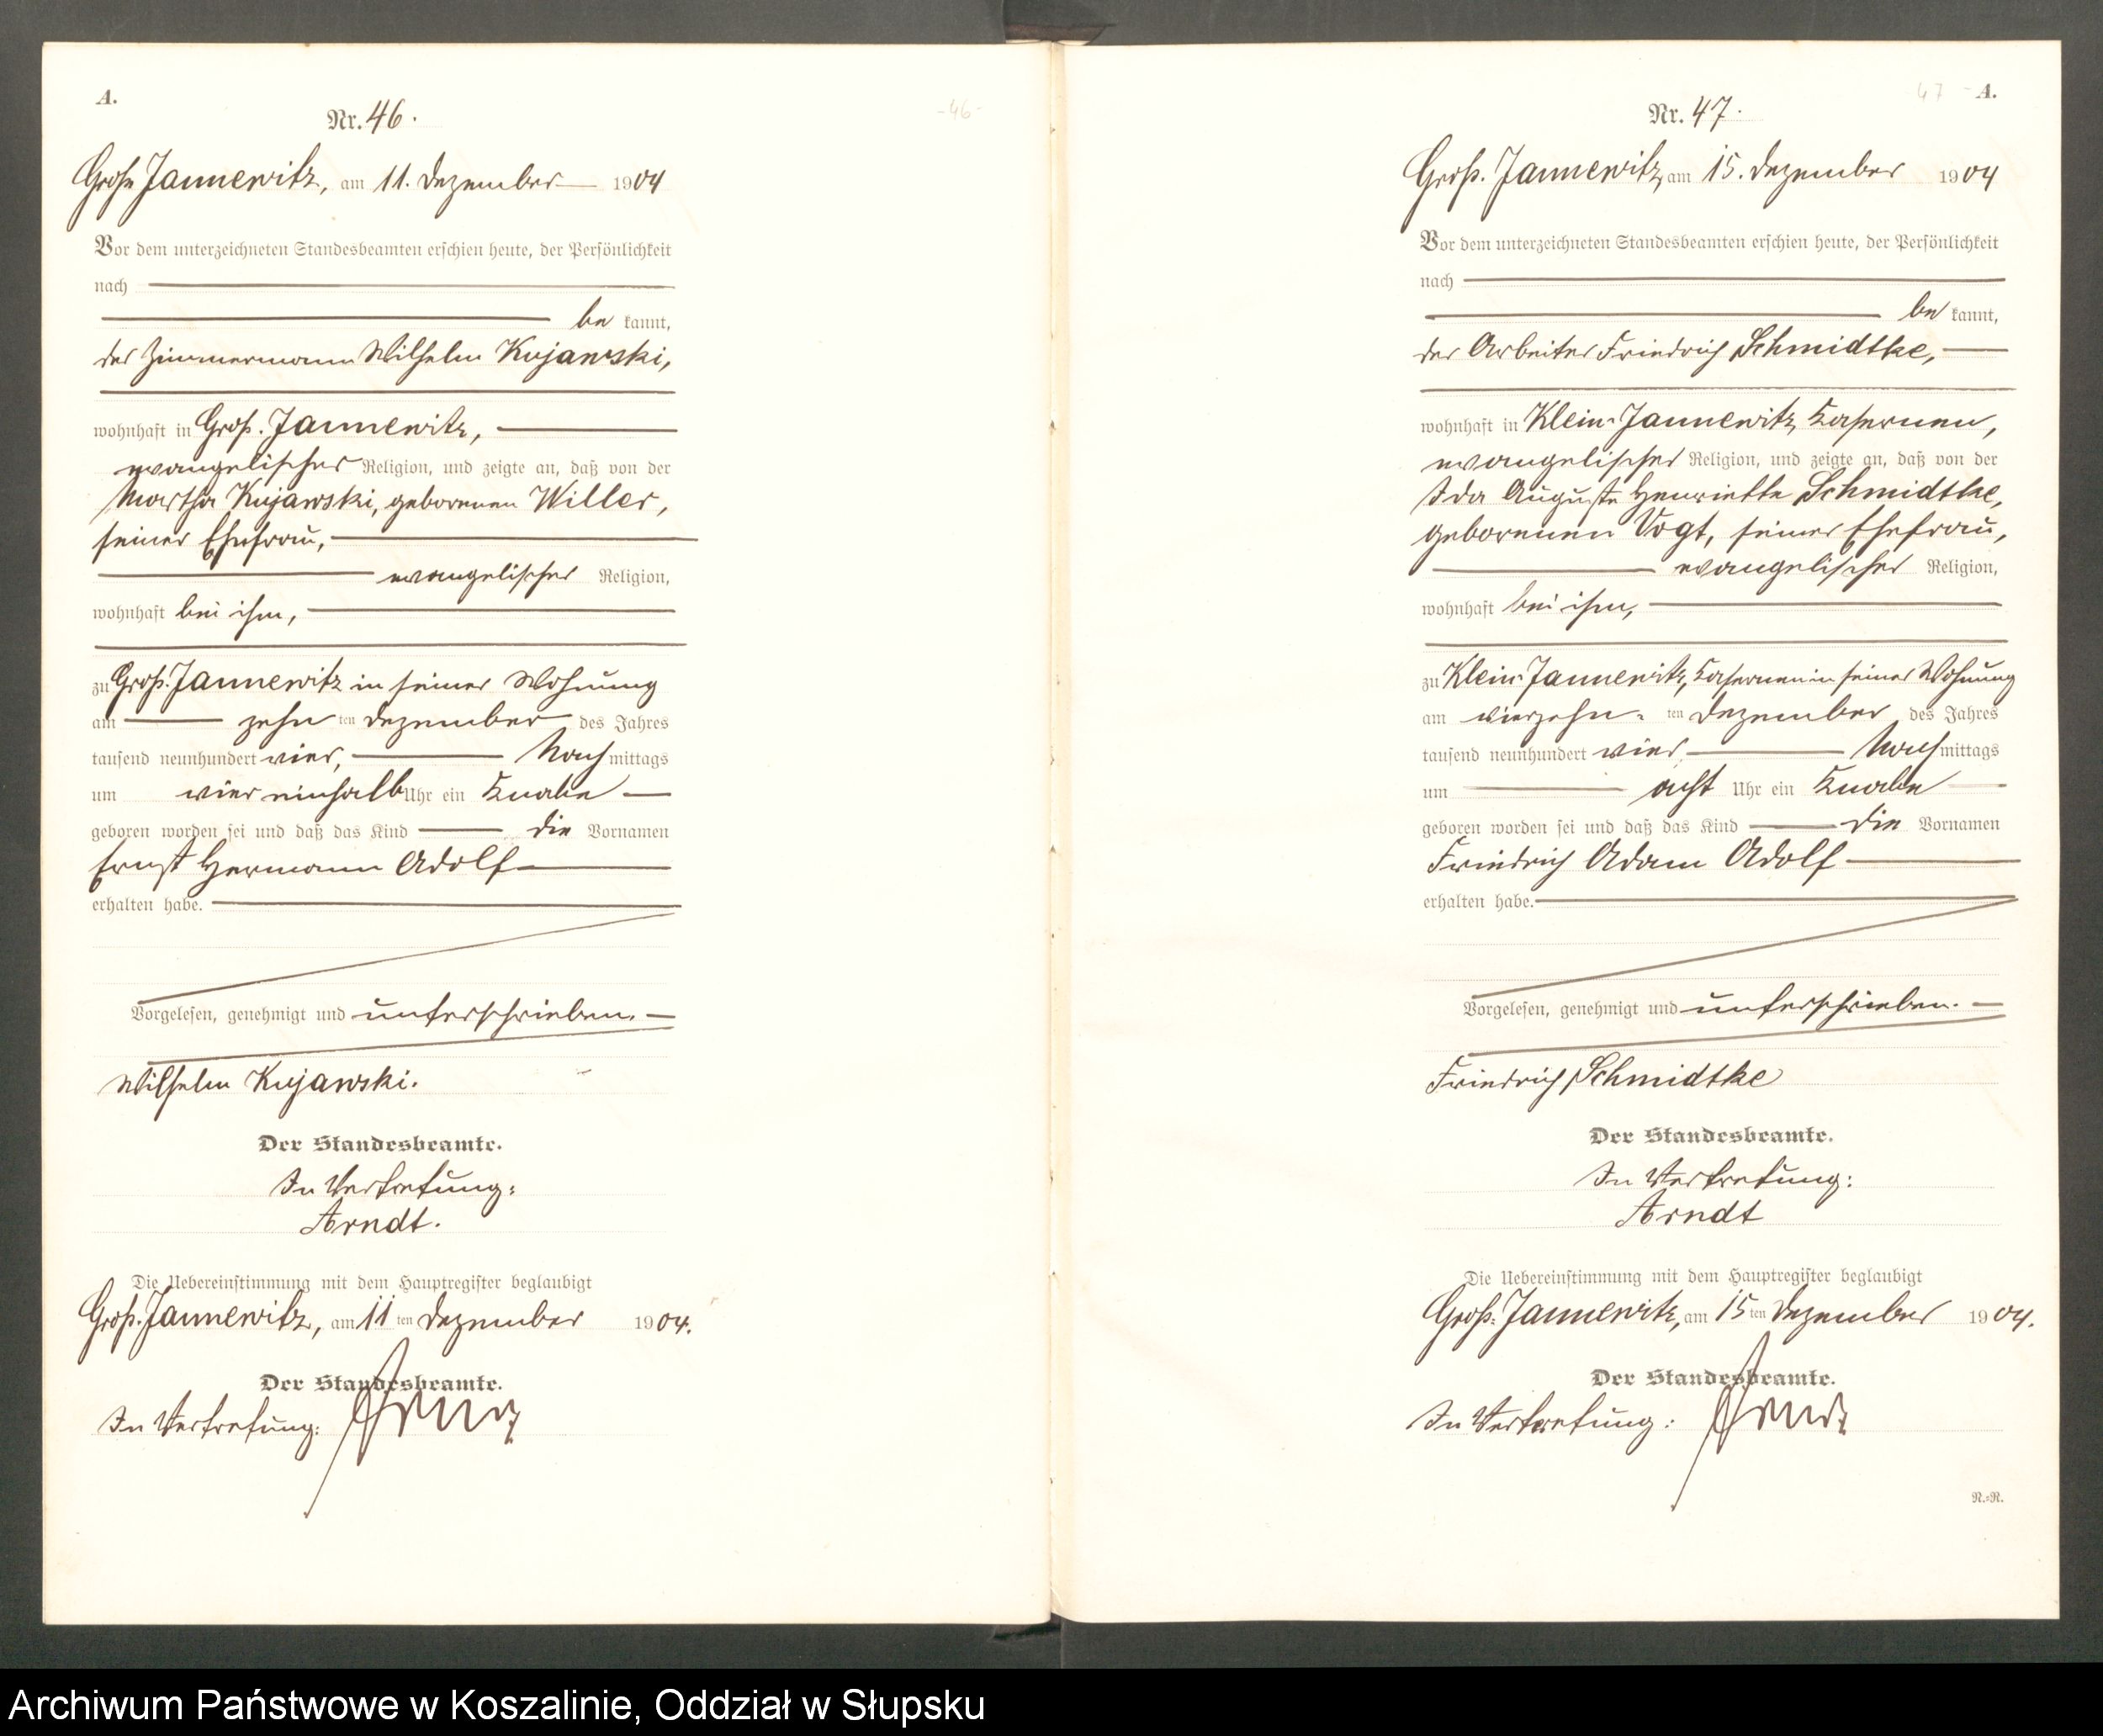 A.
Nr. 46.
-46-
Groß Jannewitz, am 11. Dezember 1904
Vor dem unterzeichneten Standesbeamten erschien heute, der Persönlichkeit
nach
be kannt,
der Zimmermann Wilhelm Kujawski,
wohnhaft in Groß-Jannewitz,
evangelischer Religion, und zeigte an, daß von der
Martha Kujawski, geborenen Willer,
seiner Ehefrau,
evangelischer Religion,
wohnhaft bei ihm,
zu Groß-Jannewitz in seiner Wohnung
am zehn ten Dezember des Jahres
tausend neunhundert vier, Nach mittags
um vier einhalb Uhr ein Knabe
geboren worden sei und daß das Kind die Vornamen
Ernst Hermann Adolf
erhalten habe.
Vorgelesen, genehmigt und unterschrieben.
Wilhelm Kujawski.
Der Standesbeamte.
In Vertretung:
Arndt.
Die Uebereinstimmung mit dem Hauptregister beglaubigt
Groß-Jannewitz, am 11 ten Dezember 1904.
Der Standesbeamte.
In Vertretung: Arndt
47 A.
Nr. 47.
Groß-Jannewitz, am 15. Dezember 1904
Vor dem unterzeichneten Standesbeamten erschien heute, der Persönlichkeit
nach
be kannt,
der Arbeiter Friedrich Schmidtke,
wohnhaft in Klein-Jannewitz, Kasernen,
evangelischer Religion, und zeigte an, daß von der
Ida Auguste Henriette Schmidtke,
geborenen Vogt, seiner Ehefrau,
evangelischer Religion,
wohnhaft bei ihm,
zu Klein-Jannewitz, Kasernen in seiner Wohnung
am vierzehn- ten Dezember des Jahres
tausend neunhundert vier Nach mittags
um acht Uhr ein Knabe
geboren worden sei und daß das Kind die Vornamen
Friedrich Adam Adolf
erhalten habe.
Vorgelesen, genehmigt und unterschrieben.
Friedrich Schmidtke
Der Standesbeamte.
In Vertretung:
Arndt
Die Uebereinstimmung mit dem Hauptregister beglaubigt
Groß-Jannewitz, am 15 ten Dezember 1904.
Der Standesbeamte.
In Vertretung: Arndt
N.=R.
Archiwum Państwowe w Koszalinie, Oddział w Słupsku